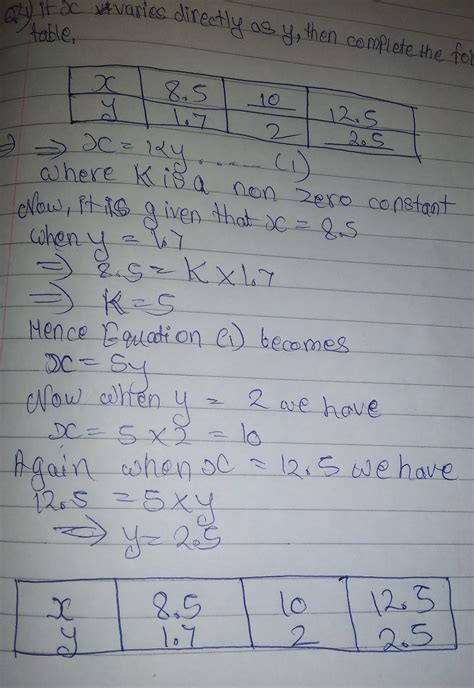 Q4) if x varies directly as y, then complete the fol
table,
x 8.5 10 12.5
y 1.7 2 2.5
⇒ ⇒ x = ky ...... (1)
where K is a non zero constant
Now, it is given that x = 8.5
when y = 1.7
⇒ 8.5 = K × 1.7
⇒ K = 5
Hence Equation (i) becomes
x = 5y
Now when y = 2 we have
x = 5 × 2 = 10
Again when x = 12.5 we have
12.5 = 5 × y
⇒ y = 2.5
x 8.5 10 12.5
y 1.7 2 2.5